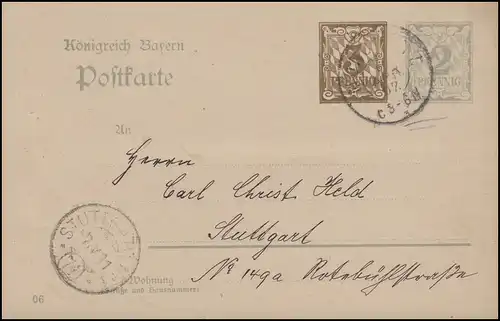 Königreich Bayern
Postkarte
3
PFENNIG
2
PFENNIG
An
Herrn
Carl Christ Held
Stuttgart
No 149a Rotebühlstraße
STUTTGART
Wohnung
06